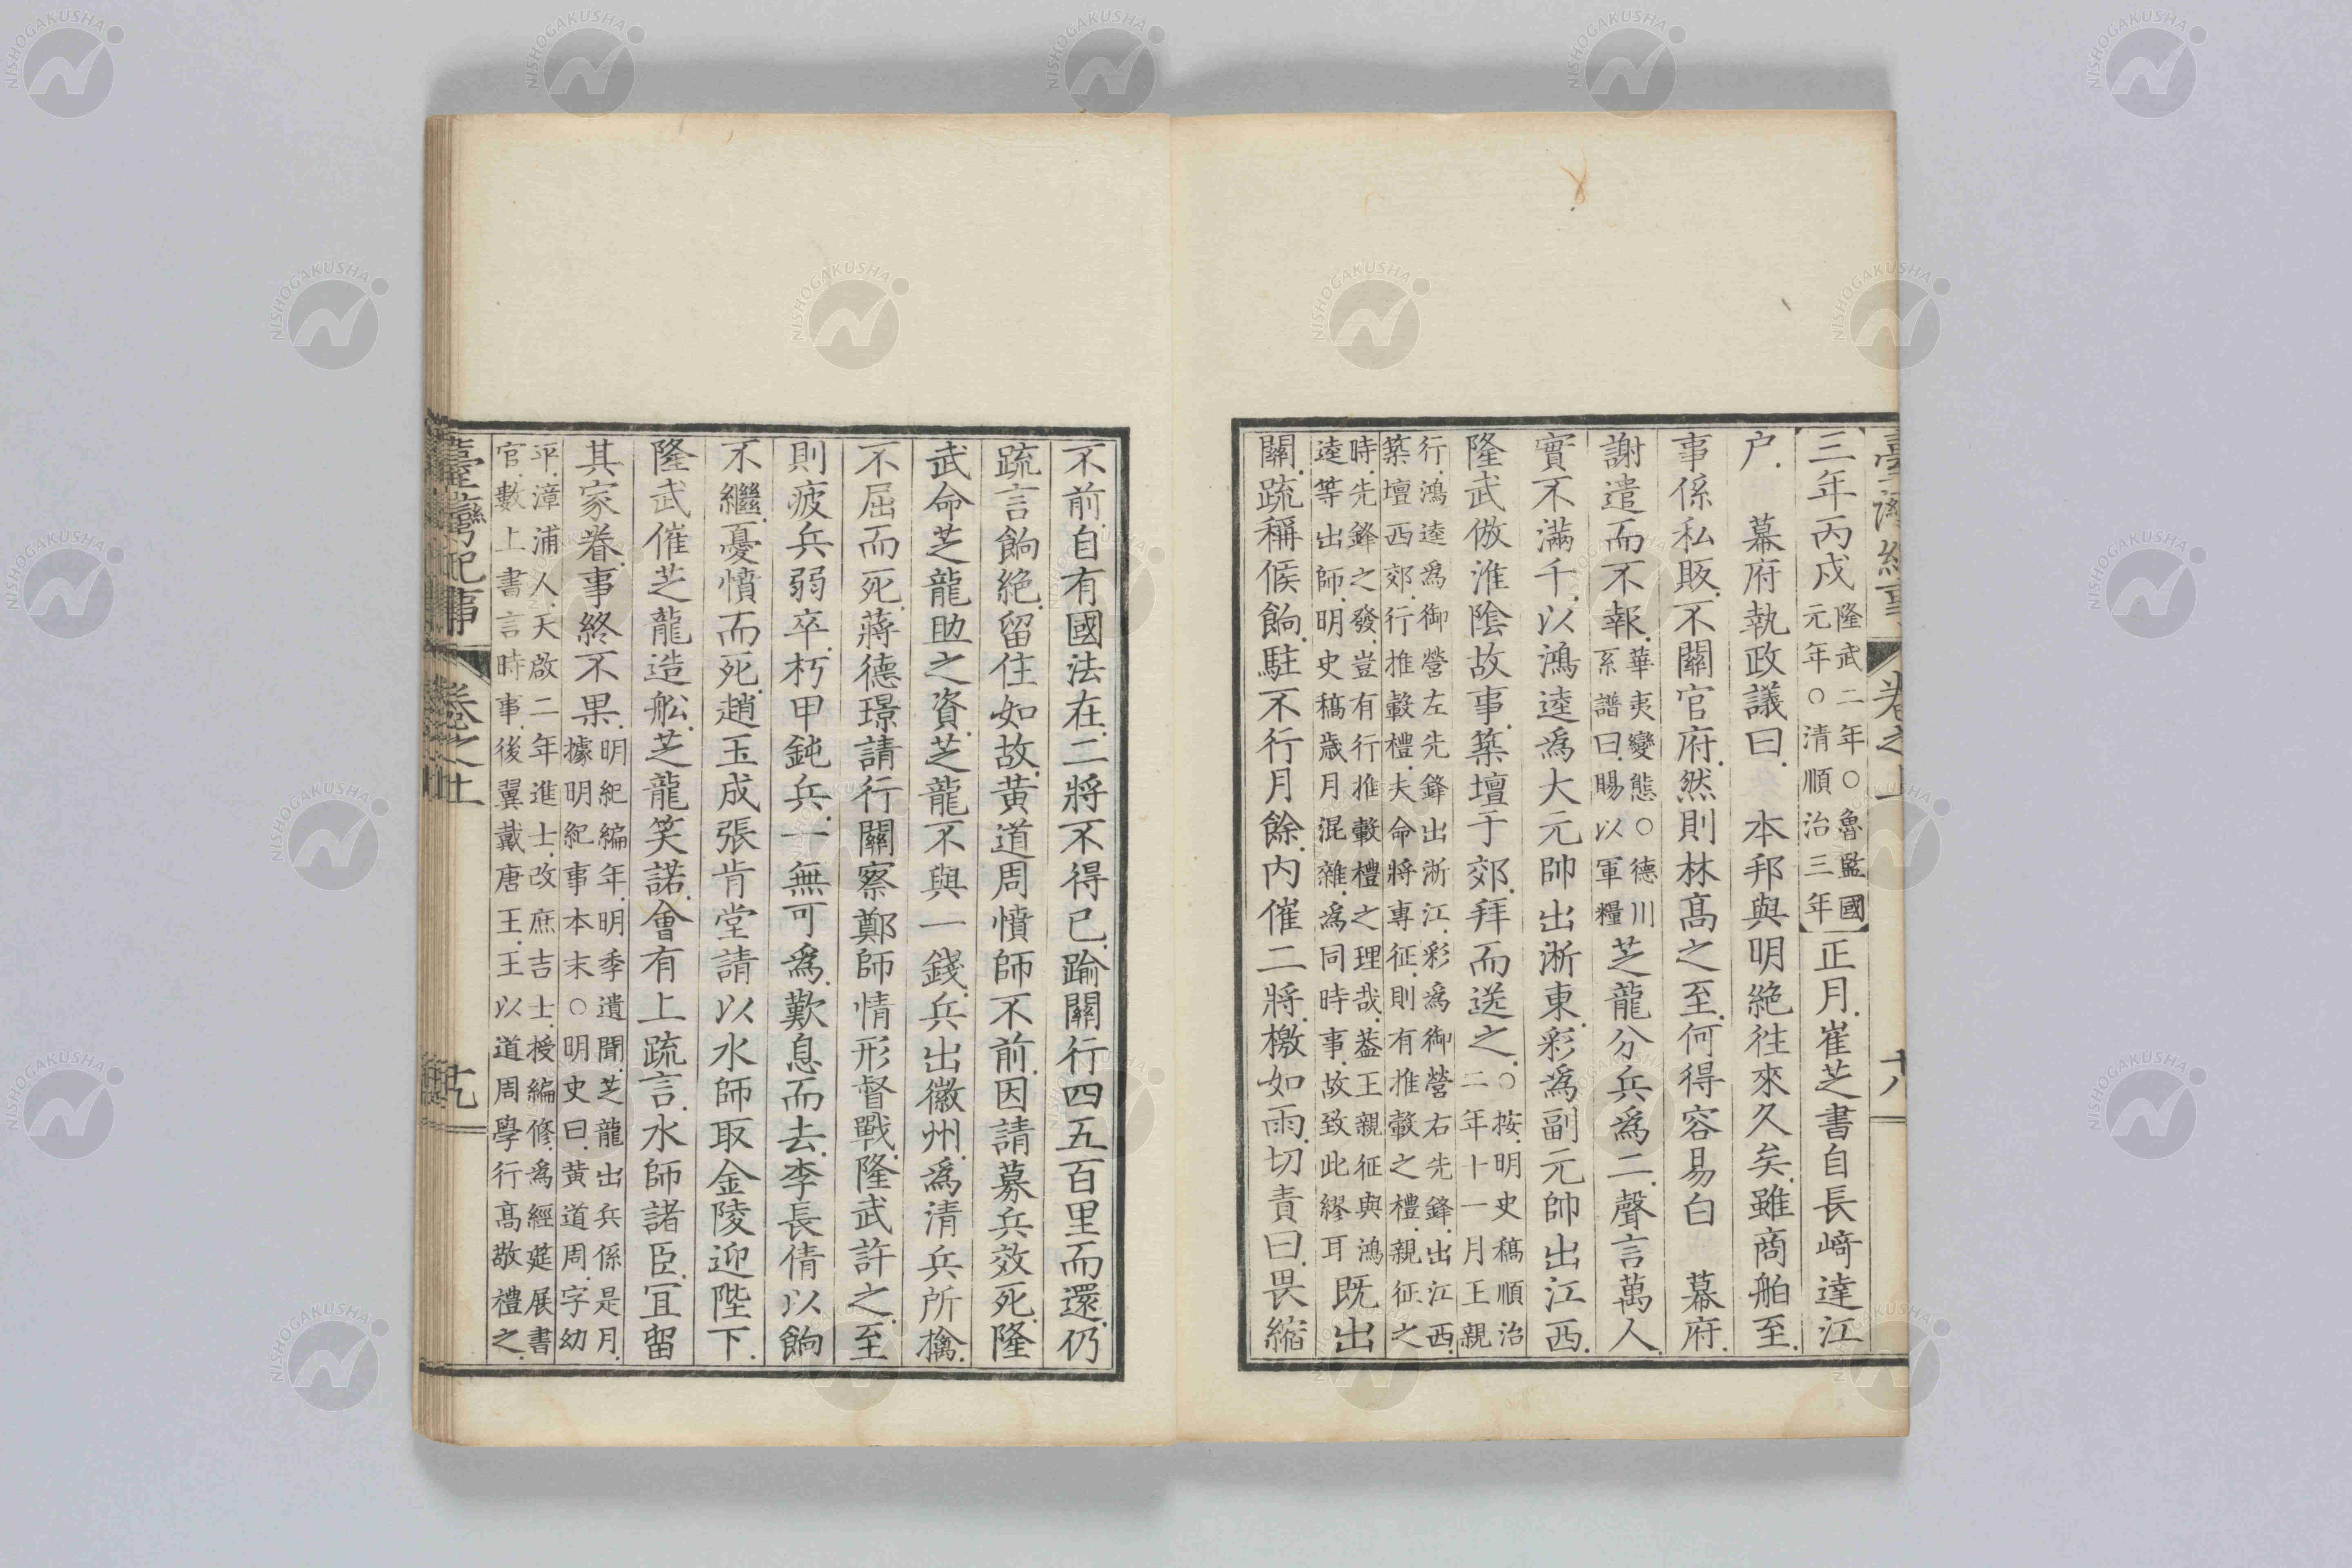 臺灣紀事 卷之上 十八
三年丙戌
隆武二年○魯監國
元年○清順治三年
正月.崔芝書自長﨑達江
户. 幕府執政議曰. 本邦與明絶徃來久矣.雖商舶至.
事係私販.不關官府.然則林髙之至.何得容易白 幕府.
謝遣而不報.
華夷變態○德川
系譜曰.賜以軍糧
芝龍分兵爲二.聲言萬人.
實不滿千.以鴻逵爲大元帥出淅東.彩爲副元帥出江西.
隆武倣淮陰故事.築壇于郊.拜而送之.
○按.明史稿順治
二年十一月王親
行.鴻逵爲御營左先鋒出淅江.彩爲御營右先鋒.出江西.
築壇西郊.行推轂禮.夫命將專征.則有推轂之禮.親征之
時.先鋒之發.豈有行推轂禮之理哉.葢王親征與鴻
逵等出師.明史稿歳月混雜.爲同時事.故致此繆耳
既出
關.疏稱候餉.駐不行月餘.内催二將.檄如雨.切責曰.畏縮
不前.自有國法在.二將不得已.踰關行四五百里而還.仍
疏言餉絶.留住如故.黄道周憤師不前.因請募兵效死.隆
武命芝龍助之資.芝龍不與一錢.兵出徽州.爲清兵所擒.
不屈而死.蔣德璟請行關察鄭師情形督戰.隆武許之.至
則疲兵弱卒.朽甲鈍兵.一無可爲.歎息而去.李長倩以餉
不繼.憂憤而死.趙玉成張肯堂請以水師取金陵迎陛下.
隆武催芝龍造舩.芝龍笑諾.會有上疏言.水師諸臣.宜留
其家眷.事終不果.
明紀編年.明季遺聞.芝龍出兵係是月.
據明紀事本末○明史曰.黄道周.字幼
平.漳浦人.天啟二年進士.改庶吉士.授編修.爲經筵展書
官.數上書言時事.後翼戴唐王.王以道周學行髙敬禮之.
臺灣紀事 卷之上 十九
NISHOGAKUSHA